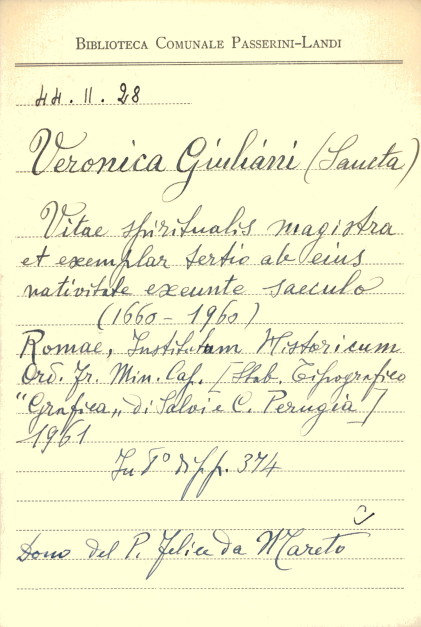 BIBLIOTECA COMUNALE PASSERINI-LANDI
44.II.28
Veronica Giuliani (Sancta)
Vitae spiritualis magistra
et exemplar tertio ab eius
nativitate exeunte saeculo
(1660-1960)
Romae, Institutum Historicum
Ord. Fr. Min. Cap. [Stab. Tipografico
"Grafica" di Salvi e C. Perugia]
1961
In 8° di pp. 374
Dono del P. Felice da Mareto